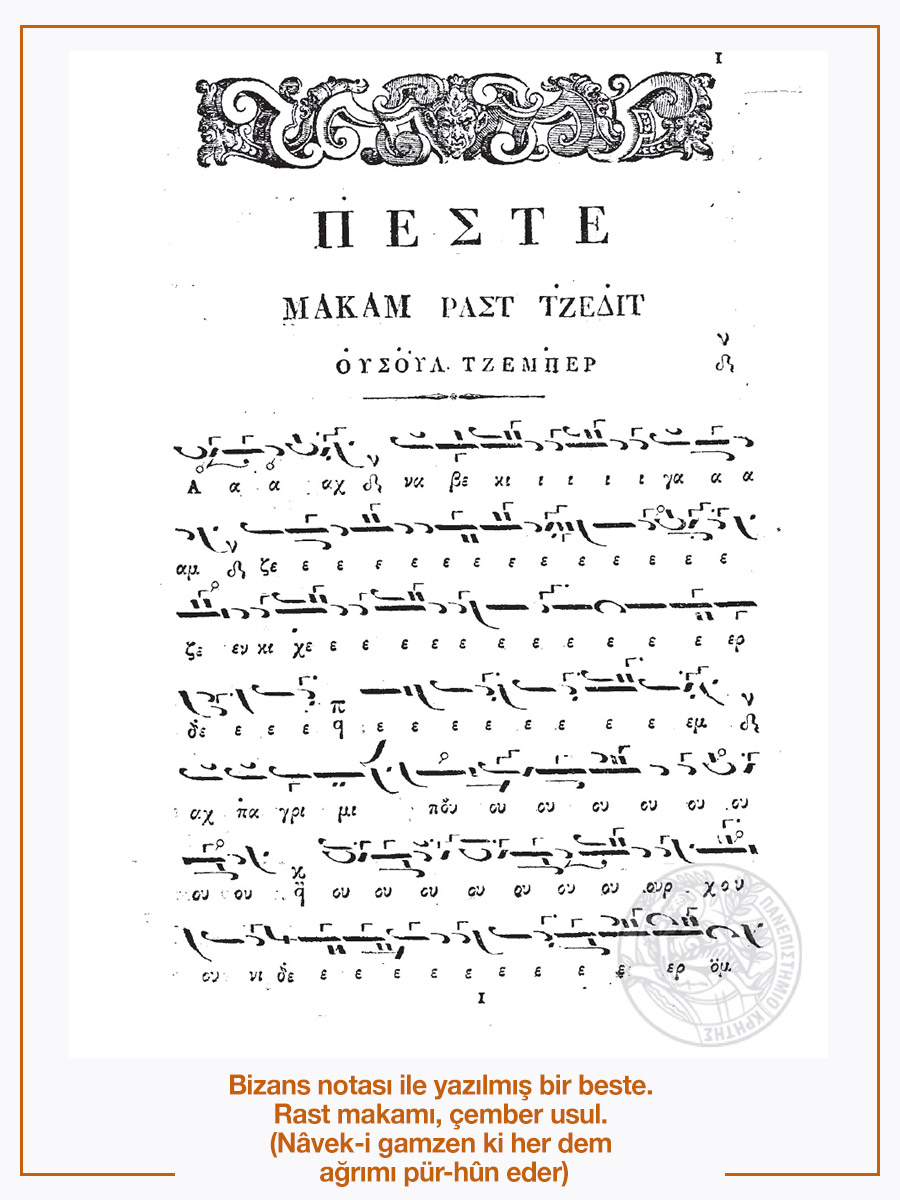 1
ΠΕΣΤΕ
ΜΑΚΑΜ ΡΑΣΤ ΤΖΕΔΙΤ
ΟΥΣΟΥΛ. ΤΖΕΜΠΕΡ
Α α α αχ να βε κι ι ι ι ι γα α α
αμ ζε ε ε ε ε ε ε ε ε ε ε ε ε ε
ζε εν κι χε ε ε ε ε ε ε ε ε ε ε ε ερ
δε ε ε ε ε ε ε ε ε ε ε ε εμ
αχ πα γρι μι που ου ου ου ου ου ου
ου ου ου ου ου ου ου ου ου ουρ χου
ου νι δε ε ε ε ε ε ε ε ε ε ερ ομ
1
ΠΑΝΕΠΙΣΤΗΜΙΟ ΚΡΗΤΗΣ
Bizans notası ile yazılmış bir beste.
Rast makamı, çember usul.
(Nâvek-i gamzen ki her dem
ağrımı pür-hûn eder)